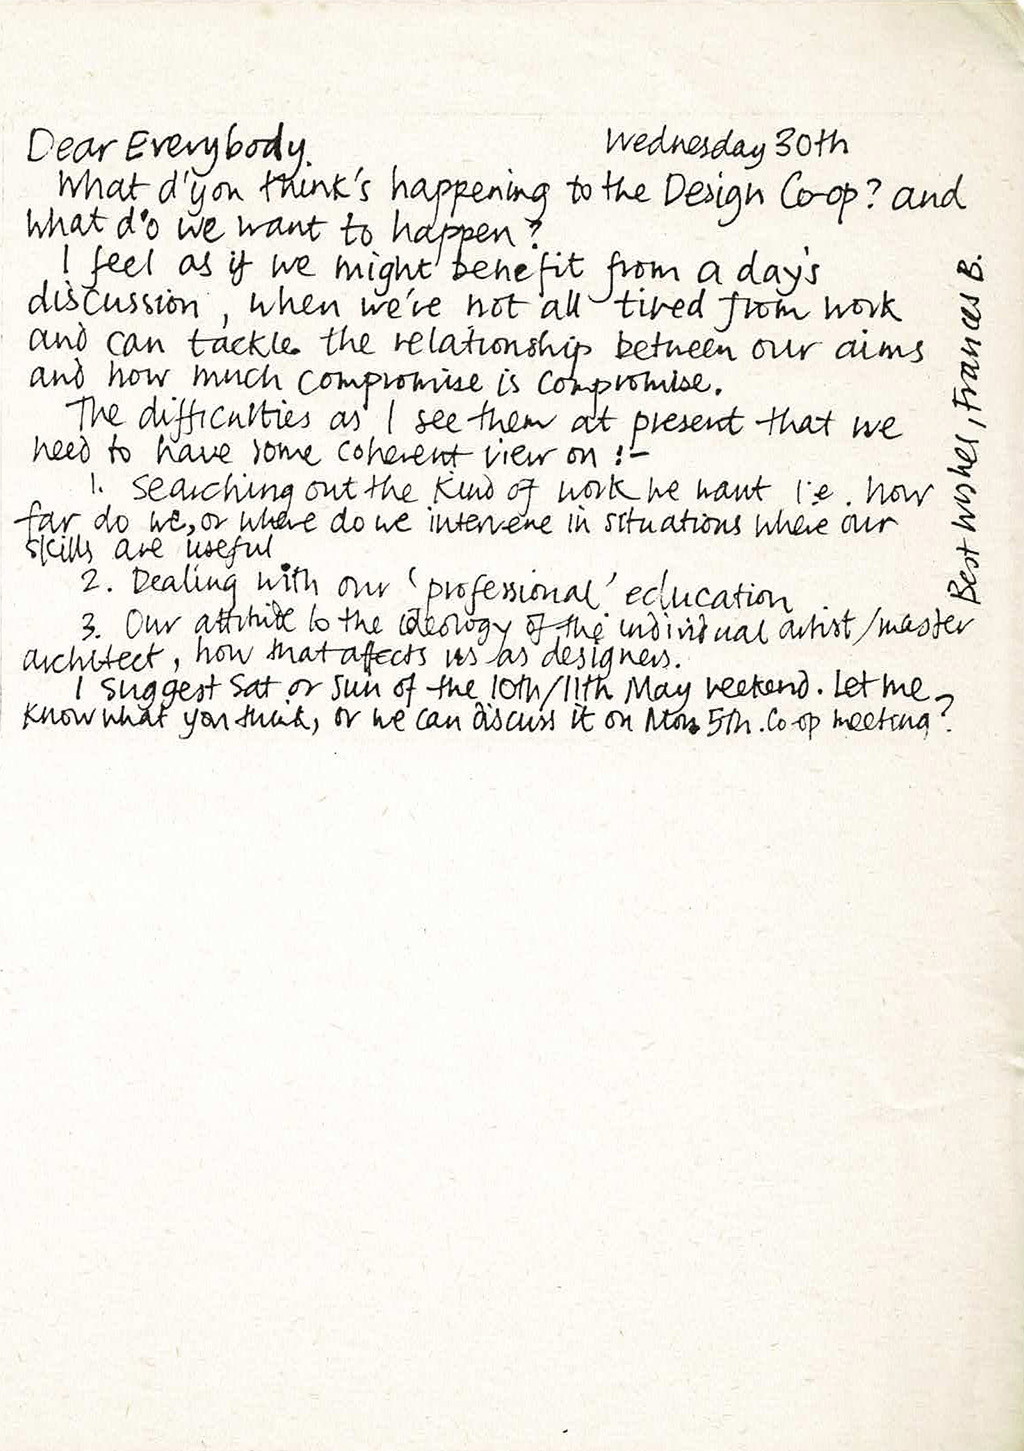 Dear Everybody. Wednesday 30th
What d'you think's happening to the Design Co-op? and
what d'o we want to happen?
I feel as if we might benefit from a day's
discussion, when we're not all tired from work
and can tackle the relationship between our aims
and how much compromise is compromise.
The difficulties as I see them at present that we
need to have some coherent view on :-
1. Searching out the kind of work we want i.e. how
far do we, or where do we intervene in situations where our
skills are useful
2. Dealing with our 'professional' education
3. Our attitude to the ideology of the individual artist/master
architect, how that affects us as designers.
I suggest Sat or Sun of the 10th/11th May weekend. Let me
know what you think, or we can discuss it on Mon. 5th. Co-op meeting?
Best wishes, Frances B.